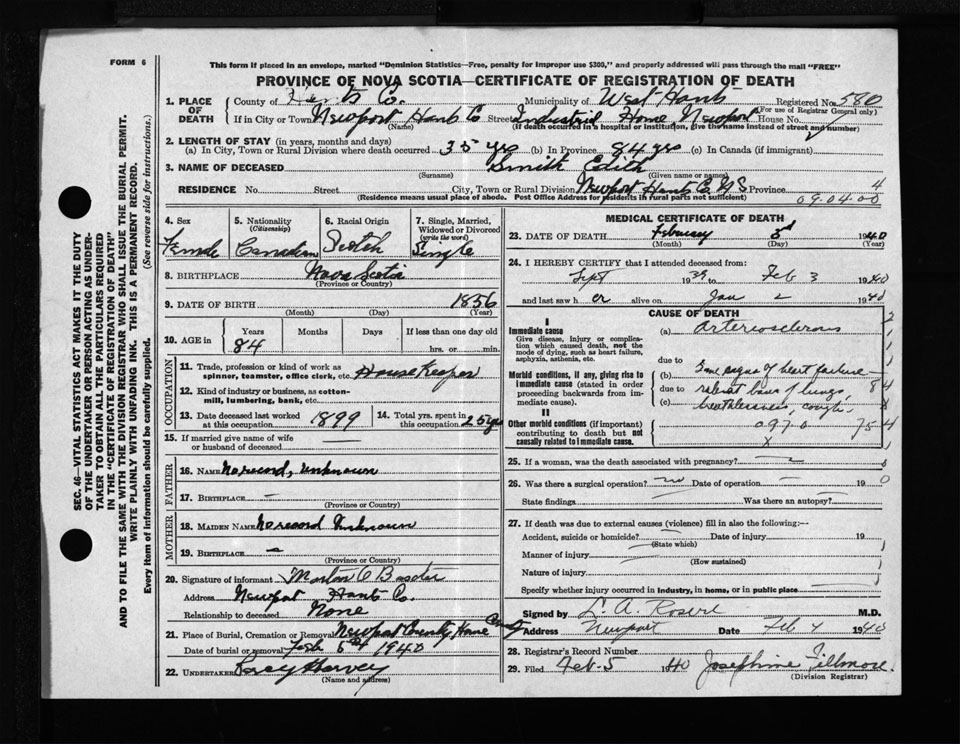 FORM 6
This form if placed in an envelope, marked "Dominion Statistics—Free, penalty for improper use $300," and properly addressed will pass through the mail "FREE"
PROVINCE OF NOVA SCOTIA—CERTIFICATE OF REGISTRATION OF DEATH
1. PLACE OF DEATH
County of Hants Co. Municipality of West Hants Registered No. 580
(For use of Registrar General only)
If in City or Town Newport Hants Co Street Industrial Home, Newport House No.
(Name) (If death occurred in a hospital or institution, give the name instead of street and number)
2. LENGTH OF STAY (in years, months and days)
(a) In City, Town or Rural Division where death occurred 35 yrs (b) In Province 84 yrs (c) In Canada (if immigrant)
3. NAME OF DECEASED Smith Edith
(Surname) (Given name or names)
RESIDENCE No. Street City, Town or Rural Division Newport Hants Co. N S Province 4
(Residence means usual place of abode. Post Office Address for residents in rural parts not sufficient) 09.04.00
4. Sex
Female
5. Nationality
(Citizenship)
Canadian
6. Racial Origin
Scotch
7. Single, Married, Widowed or Divorced
(write the word)
Single
8. BIRTHPLACE Nova Scotia
(Province or Country)
9. DATE OF BIRTH 1856
(Month) (Day) (Year)
10. AGE in Years Months Days If less than one day old
84 hrs. or min.
OCCUPATION
11. Trade, profession or kind of work as spinner, teamster, office clerk, etc. House Keeper
12. Kind of industry or business, as cotton-mill, lumbering, bank, etc.
13. Date deceased last worked at this occupation 1899
14. Total yrs. spent in this occupation 25 yrs
15. If married give name of wife or husband of deceased
FATHER
16. NAME No record, Unknown
17. BIRTHPLACE —
(Province or Country)
MOTHER
18. MAIDEN NAME No record Unknown
19. BIRTHPLACE —
(Province or Country)
20. Signature of informant Morton O
Address Newport Hants Co.
Relationship to deceased None
21. Place of Burial, Cremation or Removal Newport County Home
Date of burial or removal Feb 1940
22. UNDERTAKER Percy Harvey
(Name and address)
MEDICAL CERTIFICATE OF DEATH
23. DATE OF DEATH February 3d 1940
(Month) (Day) (Year)
24. I HEREBY CERTIFY that I attended deceased from:
Sept 1939 to Feb 3 1940
and last saw h er alive on Jan 2 1940
CAUSE OF DEATH
I
Immediate cause
Give disease, injury or complication which caused death, not the mode of dying, such as heart failure, asphyxia, asthenia, etc.
(a) Arteriosclerosis
due to
Morbid conditions, if any, giving rise to immediate cause (stated in order proceeding backwards from immediate cause).
(b) signs of heart failure—
due to
(c) breathlessness, cough.
II
Other morbid conditions (if important) contributing to death but not causally related to immediate cause.
097.0
x
25. If a woman, was the death associated with pregnancy? —
26. Was there a surgical operation? no Date of operation — 19
State findings Was there an autopsy? —
27. If death was due to external causes (violence) fill in also the following:—
Accident, suicide or homicide? Date of injury 19
(State which)
Manner of injury
(How sustained)
Nature of injury
Specify whether injury occurred in industry, in home, or in public place
Signed by L. A. M.D.
Address Newport Date Feb 4 1940
28. Registrar's Record Number
29. Filed Feb. 5 1940 Josephine Fillmore
(Division Registrar)
SEC. 46—VITAL STATISTICS ACT MAKES IT THE DUTY
OF THE UNDERTAKER OR PERSON ACTING AS UNDER-
TAKER TO OBTAIN ALL THE PARTICULARS REQUIRED
IN THE "CERTIFICATE OF REGISTRATION OF DEATH"
AND TO FILE THE SAME WITH THE DIVISION REGISTRAR WHO SHALL ISSUE THE BURIAL PERMIT.
WRITE PLAINLY WITH UNFADING INK. THIS IS A PERMANENT RECORD.
Every item of information should be carefully supplied. (See reverse side for instructions.)